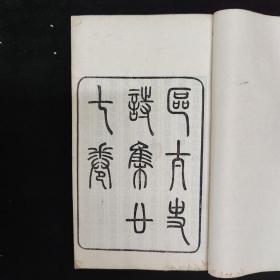 區太史
詩集廿
七卷